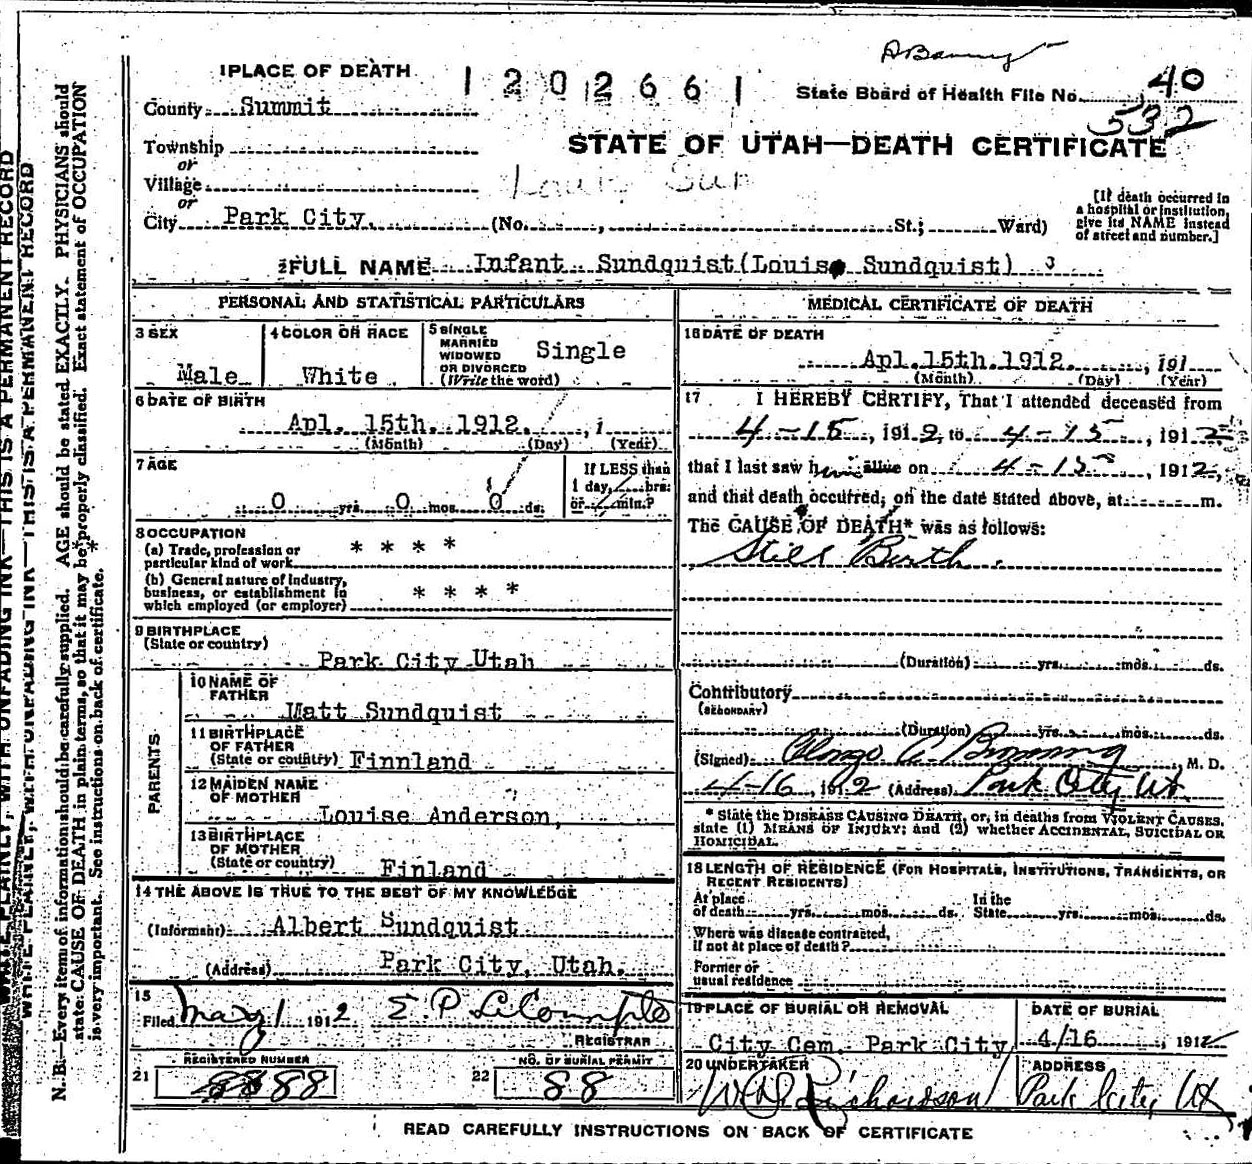 1 PLACE OF DEATH
1202661
State Board of Health File No. 40
532
County Summit
STATE OF UTAH—DEATH CERTIFICATE
Township
or
Village
or
City Park City. (No. , St.; Ward)
[If death occurred in
a hospital or institution,
give its NAME instead
of street and number.]
2 FULL NAME Infant Sundquist (Louise Sundquist)
PERSONAL AND STATISTICAL PARTICULARS
3 SEX
Male
4 COLOR OR RACE
White
5 SINGLE
MARRIED
WIDOWED
OR DIVORCED
(Write the word)
Single
6 DATE OF BIRTH
Apl. 15th. 1912. , 1
(Month) (Day) (Year)
7 AGE
0 yrs. 0 mos. 0 ds.
If LESS than
1 day, hrs.
or min.?
8 OCCUPATION
(a) Trade, profession or
particular kind of work * * * *
(b) General nature of industry,
business, or establishment in
which employed (or employer) * * * *
9 BIRTHPLACE
(State or country)
Park City Utah
PARENTS
10 NAME OF
FATHER
Matt Sundquist
11 BIRTHPLACE
OF FATHER
(State or country) Finnland
12 MAIDEN NAME
OF MOTHER
Louise Anderson,
13 BIRTHPLACE
OF MOTHER
(State or country) Finland
14 THE ABOVE IS TRUE TO THE BEST OF MY KNOWLEDGE
(Informant) Albert Sundquist
(Address) Park City, Utah.
15
Filed May 1 1912 E. P. LeCompte
REGISTRAR
REGISTERED NUMBER
21 88
NO. OF BURIAL PERMIT
22 88
MEDICAL CERTIFICATE OF DEATH
16 DATE OF DEATH
Apl. 15th. 1912. , 191
(Month) (Day) (Year)
17 I HEREBY CERTIFY, That I attended deceased from
4-15, 1912 to 4-15, 1912
that I last saw him alive on 4-15, 1912,
and that death occurred, on the date stated above, at m.
The CAUSE OF DEATH* was as follows:
Still Birth.
(Duration) yrs. mos. ds.
Contributory
(SECONDARY)
(Duration) yrs. mos. ds.
(Signed) , M. D.
4-16, 1912 (Address) Park City Ut
* State the DISEASE CAUSING DEATH, or, in deaths from VIOLENT CAUSES,
state (1) MEANS OF INJURY; and (2) whether ACCIDENTAL, SUICIDAL OR
HOMICIDAL.
18 LENGTH OF RESIDENCE (FOR HOSPITALS, INSTITUTIONS, TRANSIENTS, OR
RECENT RESIDENTS)
At place
of death yrs. mos. ds.
In the
State yrs. mos. ds.
Where was disease contracted,
if not at place of death?
Former or
usual residence
19 PLACE OF BURIAL OR REMOVAL
City Cem. Park City
DATE OF BURIAL
4/16, 1912
20 UNDERTAKER
Richardson
ADDRESS
Park City Ut
READ CAREFULLY INSTRUCTIONS ON BACK OF CERTIFICATE
WRITE PLAINLY, WITH UNFADING INK—THIS IS A PERMANENT RECORD
WRITE PLAINLY, WITH UNFADING INK—THIS IS A PERMANENT RECORD
N. B.—Every item of information should be carefully supplied. AGE should be stated EXACTLY. PHYSICIANS should
state CAUSE OF DEATH in plain terms, so that it may be properly classified. Exact statement of OCCUPATION
is very important. See instructions on back of certificate.